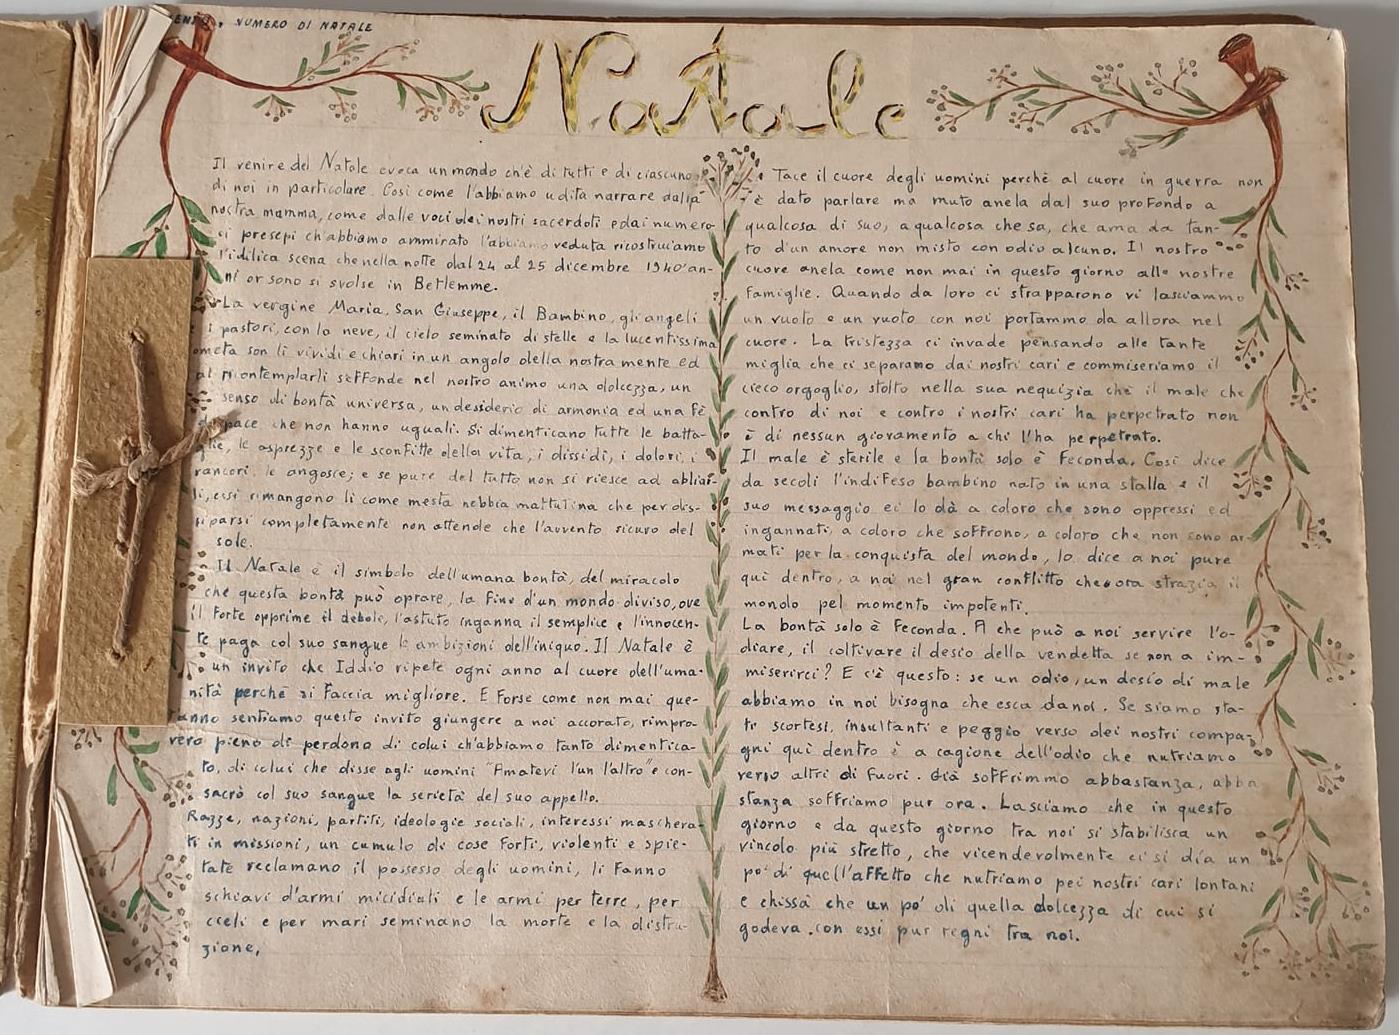 NUMERO DI NATALE
Natale
Il venire del Natale evoca un mondo ch'è di tutti e di ciascuno
di noi in particolare. Così come l'abbiamo udita narrare dalla
nostra mamma, come dalle voci dei nostri sacerdoti e dai numero-
si presepi ch'abbiamo ammirato l'abbiamo veduta ricostruiamo
l'idilica scena che nella notte dal 24 al 25 dicembre 1940 an-
ni or sono si svolse in Betlemme.
La vergine Maria, San Giuseppe, il Bambino, gli angeli
i pastori, con la neve, il cielo seminato di stelle e la lucentissima
ometa son lì vividi e chiari in un angolo della nostra mente ed
al ricontemplarli s'effonde nel nostro animo una dolcezza, un
senso di bontà universa, un desiderio di armonia ed una fè
di pace che non hanno uguali. Si dimenticano tutte le batta-
glie, le asprezze e le sconfitte della vita, i dissidi, i dolori, i
rancori, le angosce; e se pure del tutto non si riesce ad obliar-
li, essi rimangono lì come mesta nebbia mattutina che per dis-
siparsi completamente non attende che l'avvento sicuro del
sole.
Il Natale è il simbolo dell'umana bontà, del miracolo
che questa bontà può oprare, la fine d'un mondo diviso, ove
il forte opprime il debole, l'astuto inganna il semplice e l'innocen-
te paga col suo sangue le ambizioni dell'iniquo. Il Natale è
un invito che Iddio ripete ogni anno al cuore dell'uma-
nità perchè si faccia migliore. E forse come non mai que-
st'anno sentiamo questo invito giungere a noi accorato, rimpro-
vero pieno di perdono di colui ch'abbiamo tanto dimentica-
to, di colui che disse agli uomini "Amatevi l'un l'altro" e con-
sacrò col suo sangue la serietà del suo appello.
Razze, nazioni, partiti, ideologie sociali, interessi maschera-
ti in missioni, un cumulo di cose forti, violenti e spie-
tate reclamano il possesso degli uomini, li fanno
schiavi d'armi micidiali e le armi per terre, per
cceli e per mari seminano la morte e la distru-
zione,
Tace il cuore degli uomini perchè al cuore in guerra non
è dato parlare ma muto anela dal suo profondo a
qualcosa di suo, a qualcosa che sa, che ama da tan-
to d'un amore non misto con odio alcuno. Il nostro
cuore anela come non mai in questo giorno alle nostre
famiglie. Quando da loro ci strapparono vi lasciammo
un vuoto e un vuoto con noi portammo da allora nel
cuore. La tristezza ci invade pensando alle tante
miglia che ci separano dai nostri cari e commiseriamo il
cieco orgoglio, stolto nella sua nequizia chè il male che
contro di noi e contro i nostri cari ha perpetrato non
è di nessun giovamento a chi l'ha perpetrato.
Il male è sterile e la bontà solo è feconda. Così dice
da secoli l'indifeso bambino nato in una stalla e il
suo messaggio ei lo dà a coloro che sono oppressi ed
ingannati, a coloro che soffrono, a coloro che non sono ar-
mati per la conquista del mondo, lo dice a noi pure
quì dentro, a noi nel gran conflitto che ora strazia il
mondo pel momento impotenti.
La bontà solo è feconda. A che può a noi servire l'o-
diare, il coltivare il desio della vendetta se non a im-
miserirci? E c'è questo: se un odio, un desio di male
abbiamo in noi bisogna che esca da noi. Se siamo sta-
ti scortesi, insultanti e peggio verso dei nostri compa-
gni quì dentro è a cagione dell'odio che nutriamo
verso altri di fuori. Già soffrimmo abbastanza, abba
stanza soffriamo pur ora. Lasciamo che in questo
giorno e da questo giorno tra noi si stabilisca un
vincolo più stretto, che vicendevolmente ci si dia un
po' di quell'affetto che nutriamo pei nostri cari lontani
e chissà che un po' di quella dolcezza di cui si
godeva con essi pur regni tra noi.